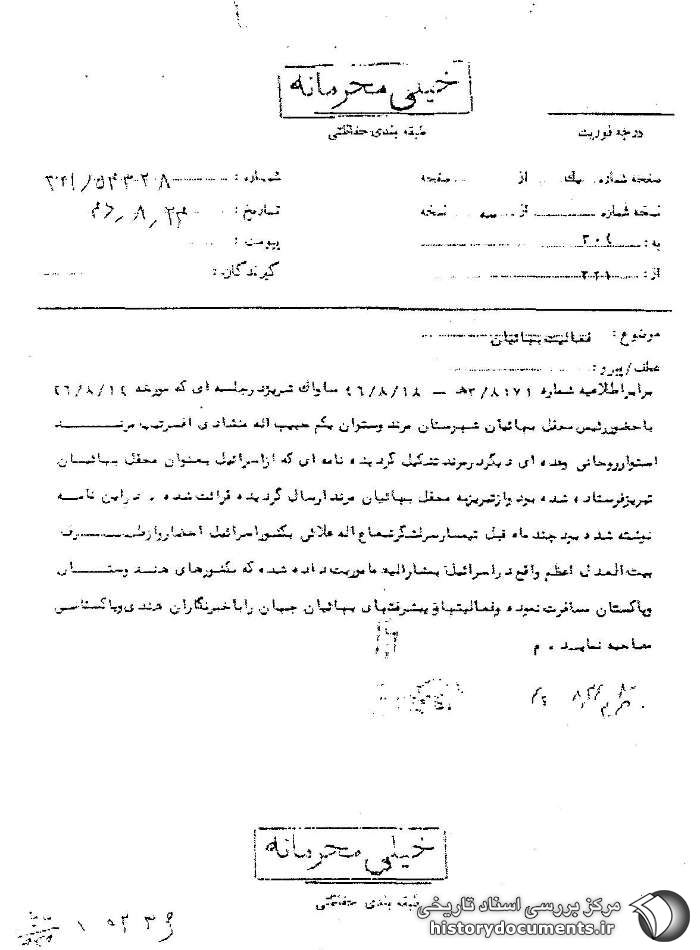 خیلی محرمانه
طبقه بندی حفاظتی
درجه فوریت
صفحه شماره یک از صفحه
نسخه شماره از سه نسخه
به : ۳۰۹
از : ۳۲۱
شماره :
تاریخ :
پیوست :
گیرندگان :
موضوع : فعالیت بهائیان
عطف/پیرو :
برابر اطلاعیه شماره ۳/۸۱۷۱ هـ – ۴۶/۸/۱۸ ساواک تبریز در جلسه ای که مورخه ۴۶/۸/۱۴
با حضور رئیس محفل بهائیان شهرستان مرند و ستوان یکم حبیب اله منشادی افسر تیپ مرند
استوار روحانی وعده ای دیگر در مرند تشکیل گردیده نامه ای که از اسرائیل بعنوان محفل بهائیان
تبریز فرستاده شده بود و از تبریز به محفل بهائیان مرند ارسال گردیده قرائت شده . در این نامه
نوشته شده بود چند ماه قبل تیمسار سرلشگر شعاع اله علائی بکشور اسرائیل احضار و از طرف
بیت العدل اعظم واقع در اسرائیل بمشارالیه ماموریت داده شده که بکشورهای هندوستان
و پاکستان مسافرت نموده و فعالیتها و پیشرفتهای بهائیان جهان را با خبرنگاران هندی و پاکستانی
مصاحبه نماید . م
خیلی محرمانه
طبقه بندی حفاظتی
مرکز بررسی اسناد تاریخی
historydocuments.ir